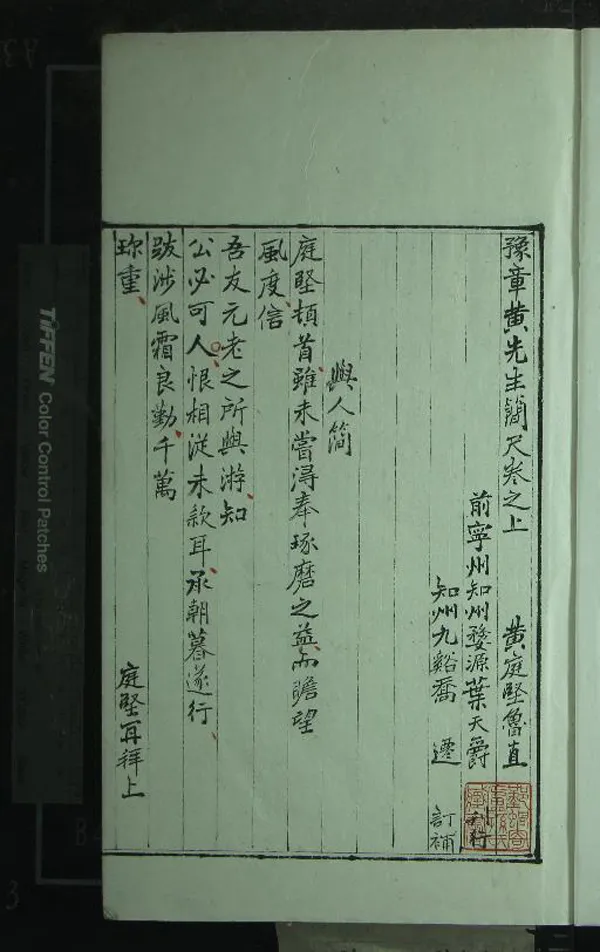 豫章黄先生簡尺卷之上 黄庭堅魯直
前寧州知州婺源葉天爵 刋行
知州九谿喬 遷 訂補
與人简
庭堅頓首雖未嘗淂奉琢磨之益而瞻望
風度信
吾友元老之所與游知
公必可人恨相從未款耳承朝暮遂行
跋涉風霜良勤千萬
珎重
庭堅再拜上
TIFFEN Color Control Patches